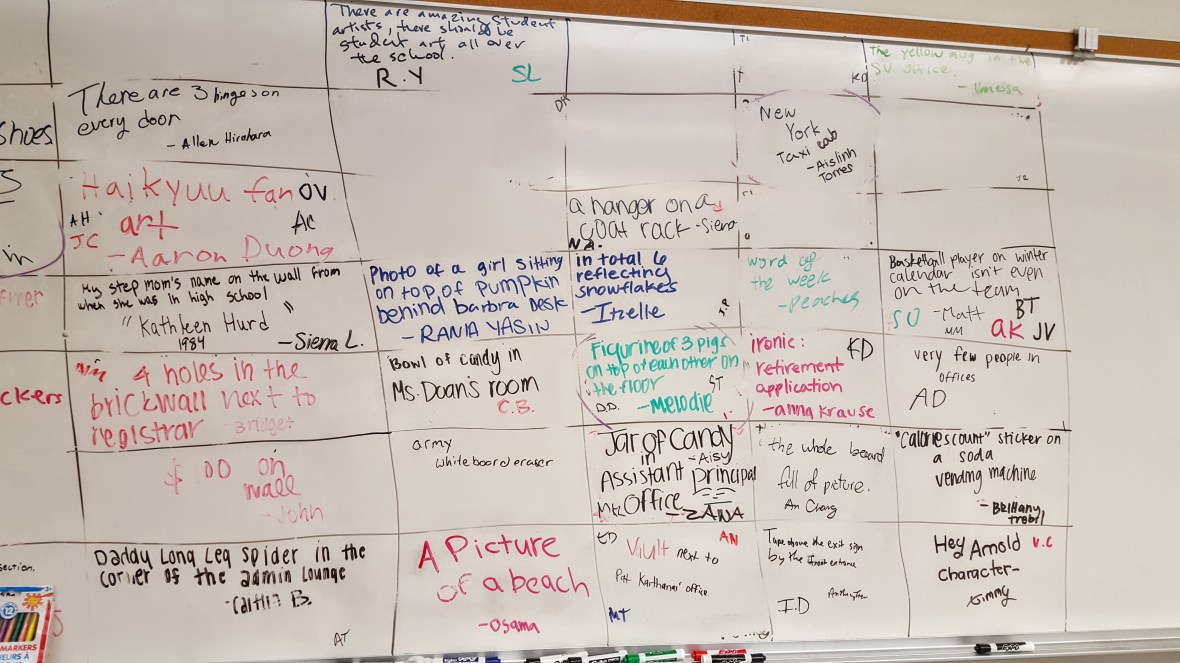 There are amazing student
artists, there should be
student art all over
the school.
R.Y
SL
KD
The yellow mug in the
SV office.
- Vanessa
shoes
There are 3 hinges on
every door
- Allen Hirahara
DH
New
York
Taxi cab
- Aislinh
Torres
JZ
S
in
Haikyuu fan
art
- Aaron Duong
OV
AH
JC
AC
a hanger on a
coat rack - Siena
N.A.
My step mom's name on the wall from
when she was in high school
"Kathleen Hurd"
1984
- Sierra L.
Photo of a girl sitting
on top of pumpkin
behind barbra desk
- RANIA YASIN
in total 6
reflecting
snowflakes
- Izelle
word of
the week
- Peaches
Basketball player on winter
calendar isn't even
on the team
SO
- Matt
MM
BT
AK
JV
ckers
4 holes in the
brickwall next to
registrar
Bridget
Bowl of candy in
Ms. Doan's room
C.B.
Figurine of 3 pigs
on top of each other on
the floor
ST
D.D.
- Melodie
ironic:
retirement
application
- anna Krause
KD
very few people in
offices
AD
$ DD on
wall
- John
army
whiteboard eraser
Jar of Candy
- Aisy
in
Assistant principal
Office
- ZANA
the whole board
full of picture.
An Chang
"Calories count" sticker on
a soda
vending machine
- Brittany
section.
Daddy Long Leg Spider in the
corner of the admin lounge
- Caitlin B.
AT
A Picture
of a beach
- Osama
AN
next to
office
MT
Tape above the exit sign
by the front entrance
I.D
Hey Arnold
character-
Jimmy
V.C
12
MARKERS
EXPO
EXPO